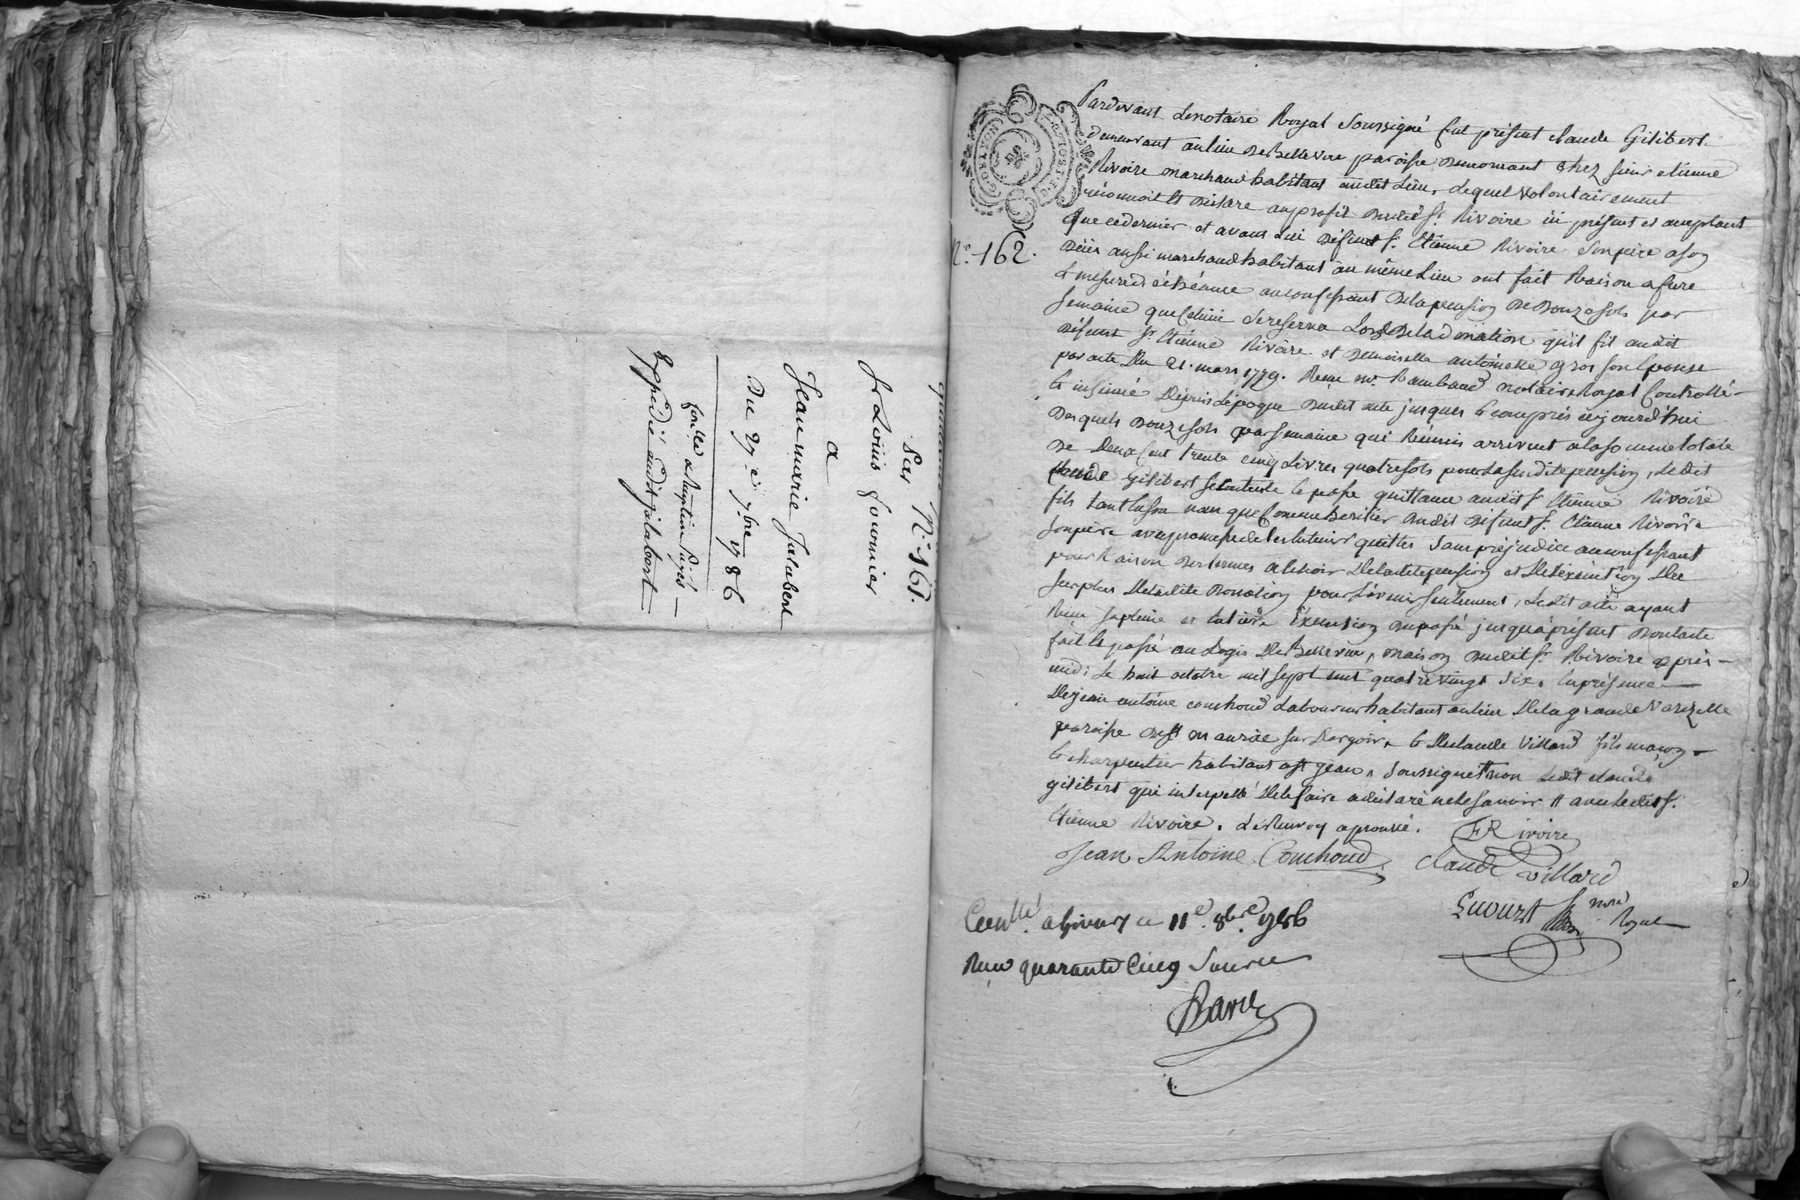 quittance
par N.° 161.
Sr Loüis fournier
a
Jean marie Jalabert
Du 27e 7bre 1786
Expedié audit jalabert
GD LYON
N.° 162.
Pardevant Le notaire Royal Soussigné fut présent claude Gilibert
demeurant au lieu De Bellevue paroisse chez sieur etienne
Rivoire marchand habitant audit Lieu, Lequel volontairement
reconnoit et au profit Dudit Sr Rivoire ici présent et acceptant
Que ce dernier et avant Lui Défunt Sr Etienne Rivoire Son père a son
aussi marchand habitant au même Lieu ont fait Raison a fure
et mesure d'échéance au confessant De la pension De Douze sols par
Semaine que Celuici Se reserva Lors De la donation qu'il fit audit
Défunt Sr Etienne Rivoire et Demoiselle antoinette gros son Epouse
par acte Du 21. mars 1779. Recu Me Rambaud notaire Royal Controllé
et insinué Depuis L'epoque Dudit acte jusques et compris aujourd'hui
Desquels Douze sols par semaine qui Reunis arrivent a la somme totale
De Deux Cent trente cinq Livres quatre sols pour La susdite pension, Ledit
Claude Gilibert Se contente et passe quittance audit Sr Etienne Rivoire
fils tant En son nom que Comme heritier Dudit Défunt Sr Etienne Rivoire
Son père avec promesse de Les En tenir quittes Sans préjudice au confessant
pour Raison Des termes a Echoir De la dite pension et De L'exécution Du
Surplus De la dite Donation pour L'avenir Seulement, Ledit acte ayant
Recu Sa pleine et Entière Exécution Du passé jusqu'a présent Dont acte
fait et passé au Logis De Bellevue, maison Dudit Sr Rivoire après
midi Le huit octobre mil sept cent quatre vingt Six. En présence
De jean antoine couchoud Laboureur habitant au lieu De la grande Varizelle
paroisse De St et De claude Villard fils maçon
et charpentier habitant a St jean, Soussignés non Ledit claude
gilibert qui interpellé De le faire a déclaré ne le Savoir // avec Ledit Sr
Etienne Rivoire. Le Renvoy aprouvé.
E Rivoire
Jean Antoine Couchoud Claude Villard
nore Royal
Contllé a Givors ce 11e 8bre 1786
Recu quarante Cinq Sous